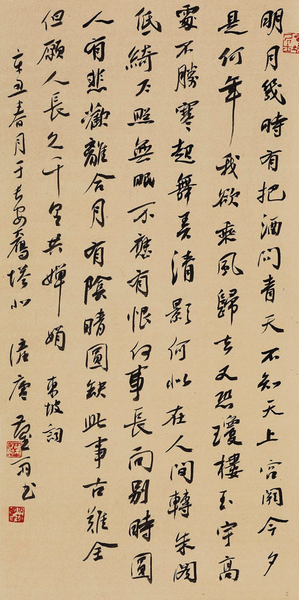 明月幾時有把酒问青天不知天上宫阙今夕
是何年我欲乘风歸去又恐瓊樓玉宇高
處不勝寒起舞弄清影何似在人间轉朱阁
低綺户照無眠不應有恨何事長向别時圆
人有悲歡離合月有陰晴圆缺此事古難全
但願人長久千里共嬋娟 東坡詞
辛丑春月于长安雁塔北